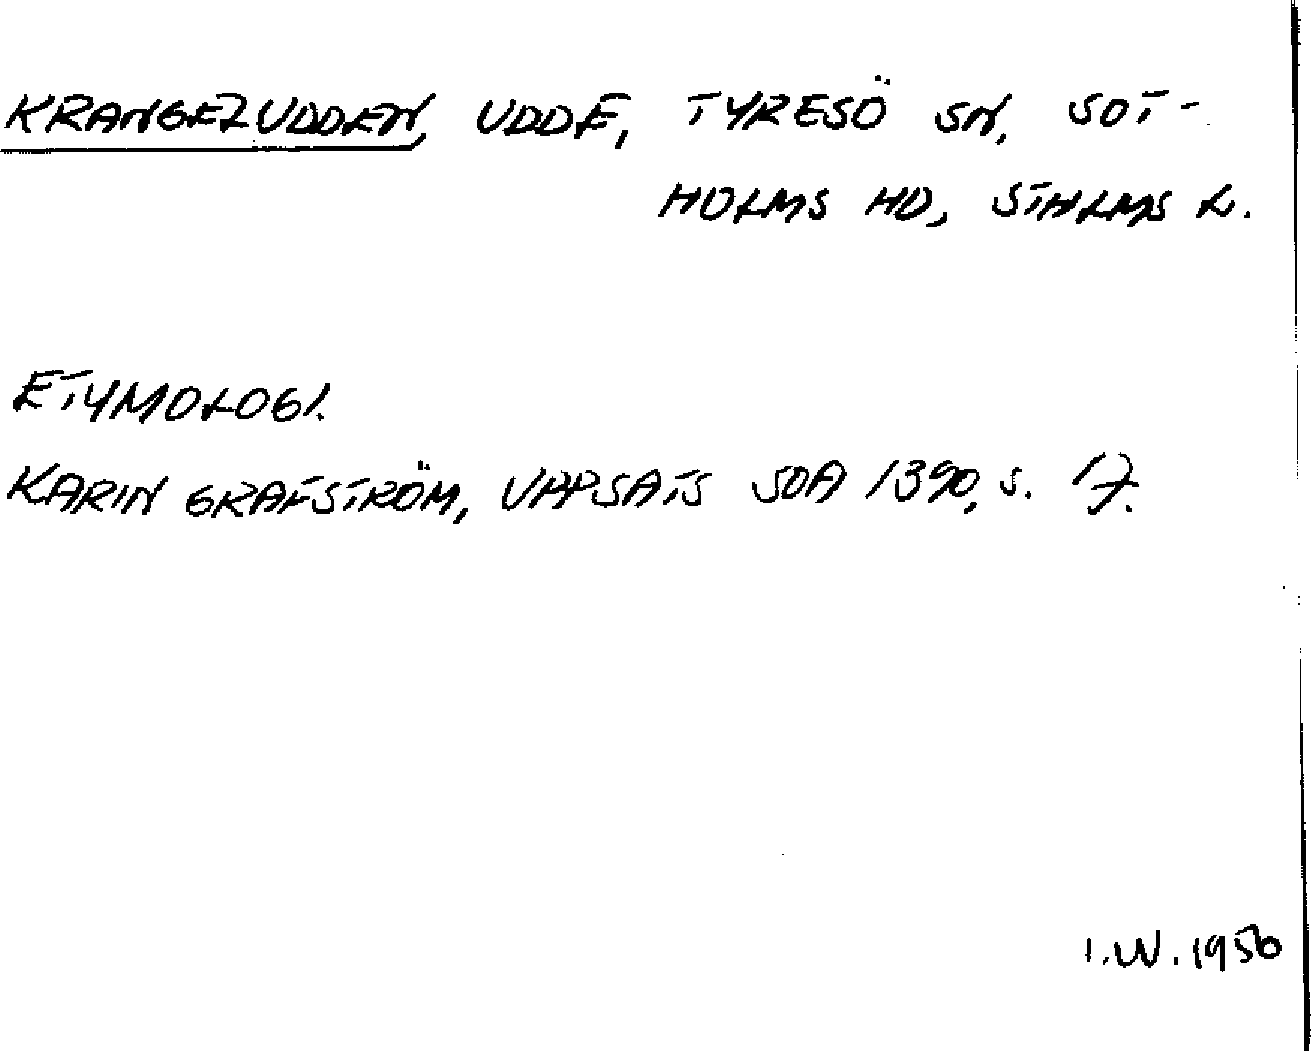 KRANGELUDDEN, UDDE, TYRESÖ SN, SOT-
HOLMS HD, STHLMS L.
ETYMOLOGI.
KARIN GRAFSTRÖM, UPPSATS SOA 1390, S. 17.
I.W. 1950